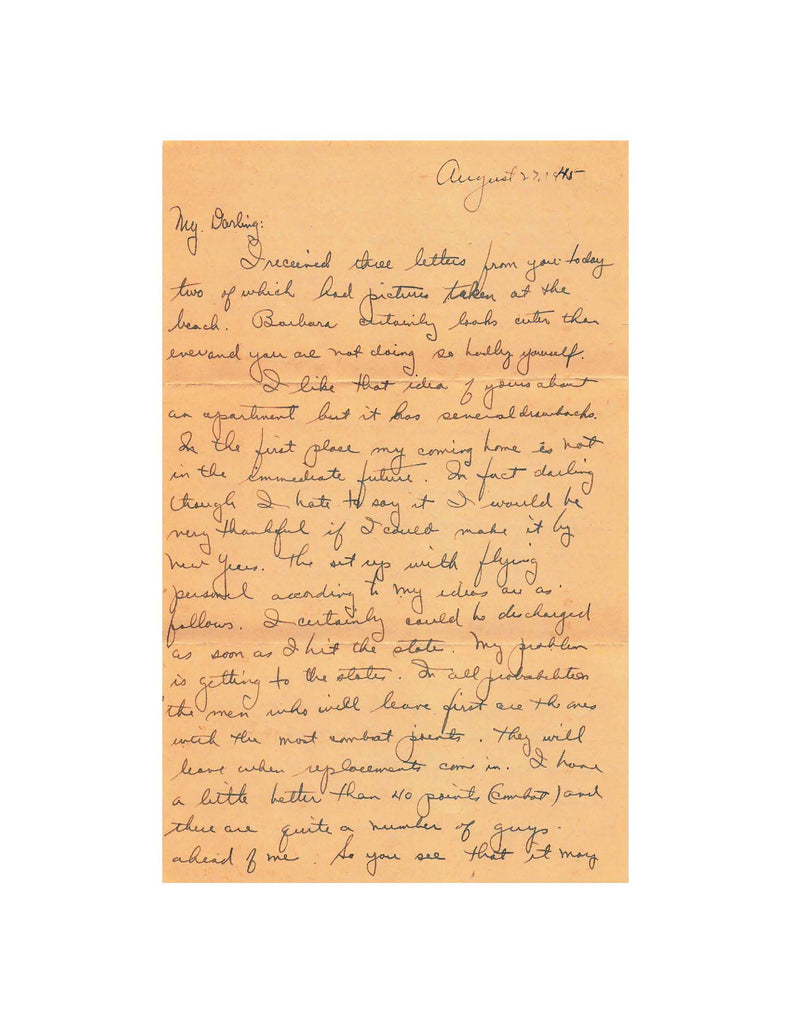 August 27, 1945
My Darling:
I received three letters from you today
two of which had pictures taken at the
beach. Barbara certainly looks cuter than
ever and you are not doing so badly yourself.
I like that idea of yours about
an apartment but it has several drawbacks.
In the first place my coming home is not
in the immediate future. In fact darling
though I hate to say it I would be
very thankful if I could make it by
New Years. The set up with flying
personel according to my ideas are as
follows. I certainly could be discharged
as soon as I hit the state. My problem
is getting to the states. In all probabilities
the men who will leave first are the ones
with the most combat points. They will
leave when replacements come in. I have
a little better than 40 points (combat) and
there are quite a number of guys
ahead of me. So you see that it may